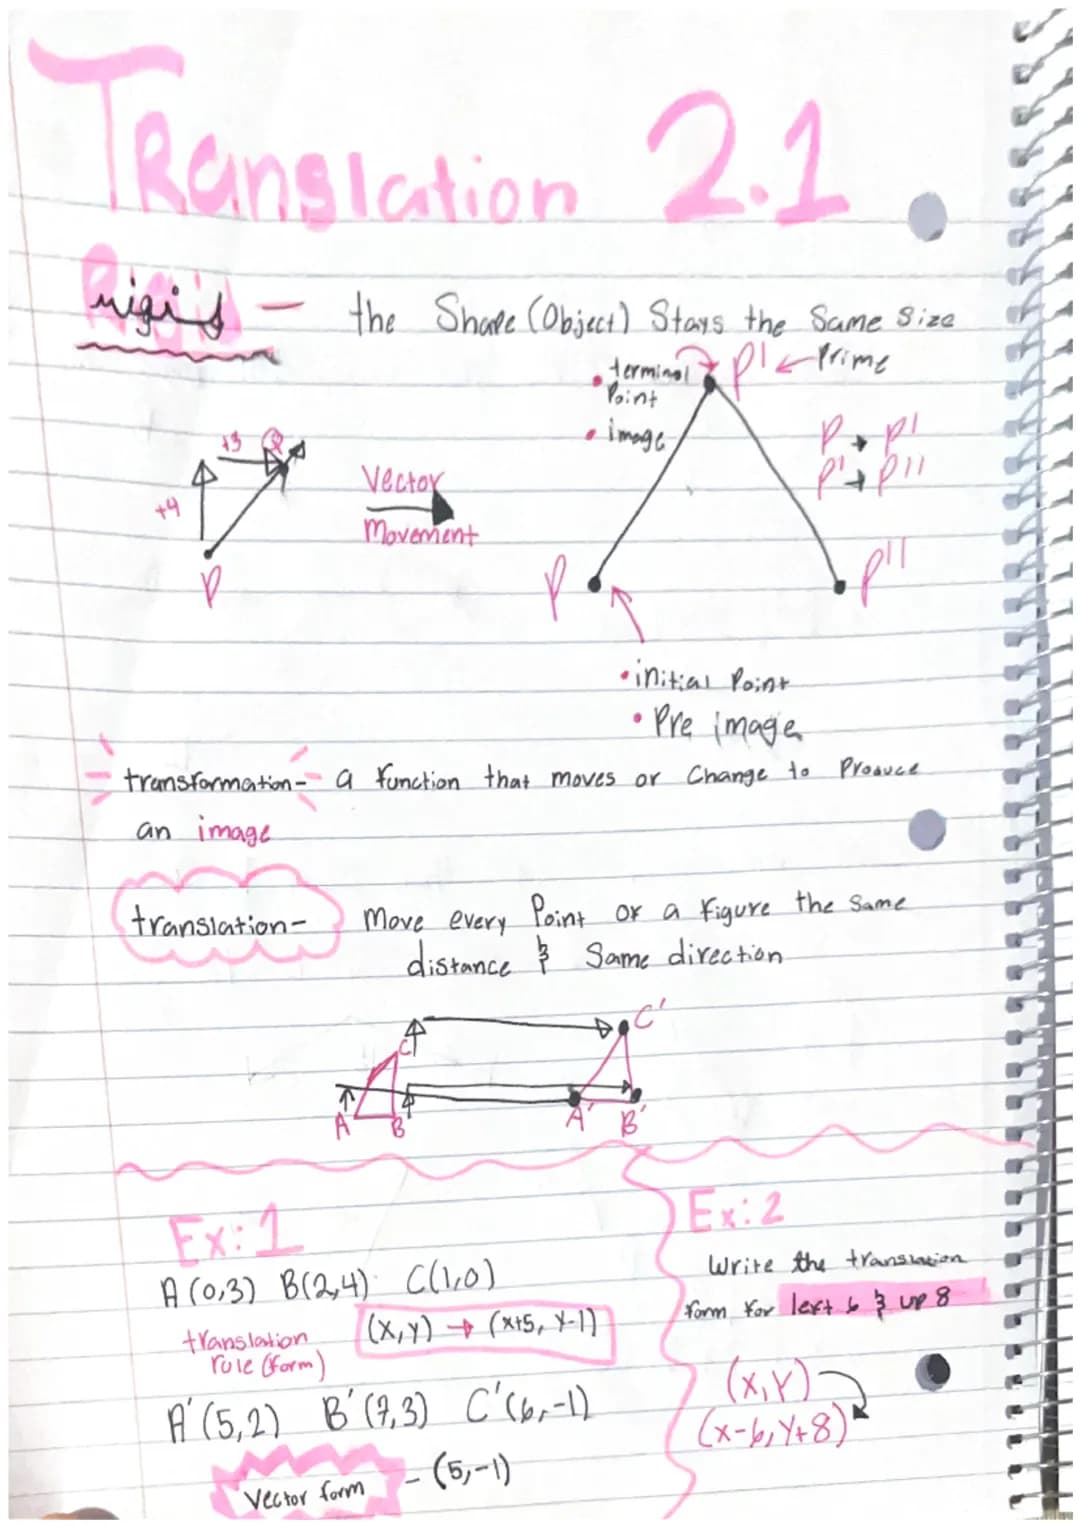 Translation 2.1
Rigid
rigid - the Shape (Object) Stays the Same Size
• terminal Point
P' ← Prime
• image
P → P'
P' → P''
+3 Q
+4
P
Vector
Movement
P
P''
• initial Point
• Pre image
transformation - a function that moves or Change to Produce
an image
translation - Move every Point or a Figure the Same
distance & Same direction
C C'
A B A' B'
Ex: 1
A (0,3) B(2,4) C(1,0)
translation
rule (form)
(x,y) → (x+5, y-1)
A' (5,2) B' (7,3) C' (6,-1)
Vector form - (5,-1)
Ex: 2
Write the translation
form for left 6 & up 8
(x,y)
(x-6, y+8)